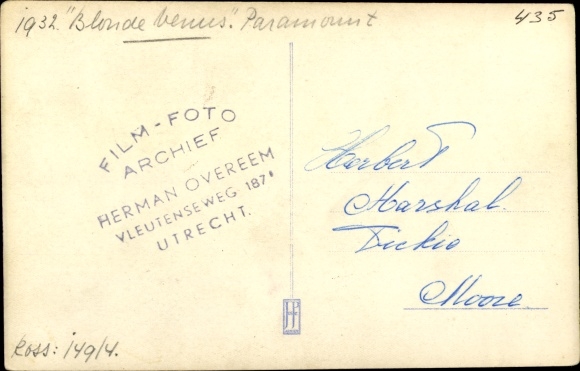 1932. "Blonde Venus". Paramount
435
FILM-FOTO
ARCHIEF
HERMAN OVEREEM
VLEUTENSEWEG 187
UTRECHT.
Herbert
Marshal.
Dickie
Moore
Ross: 149/4.